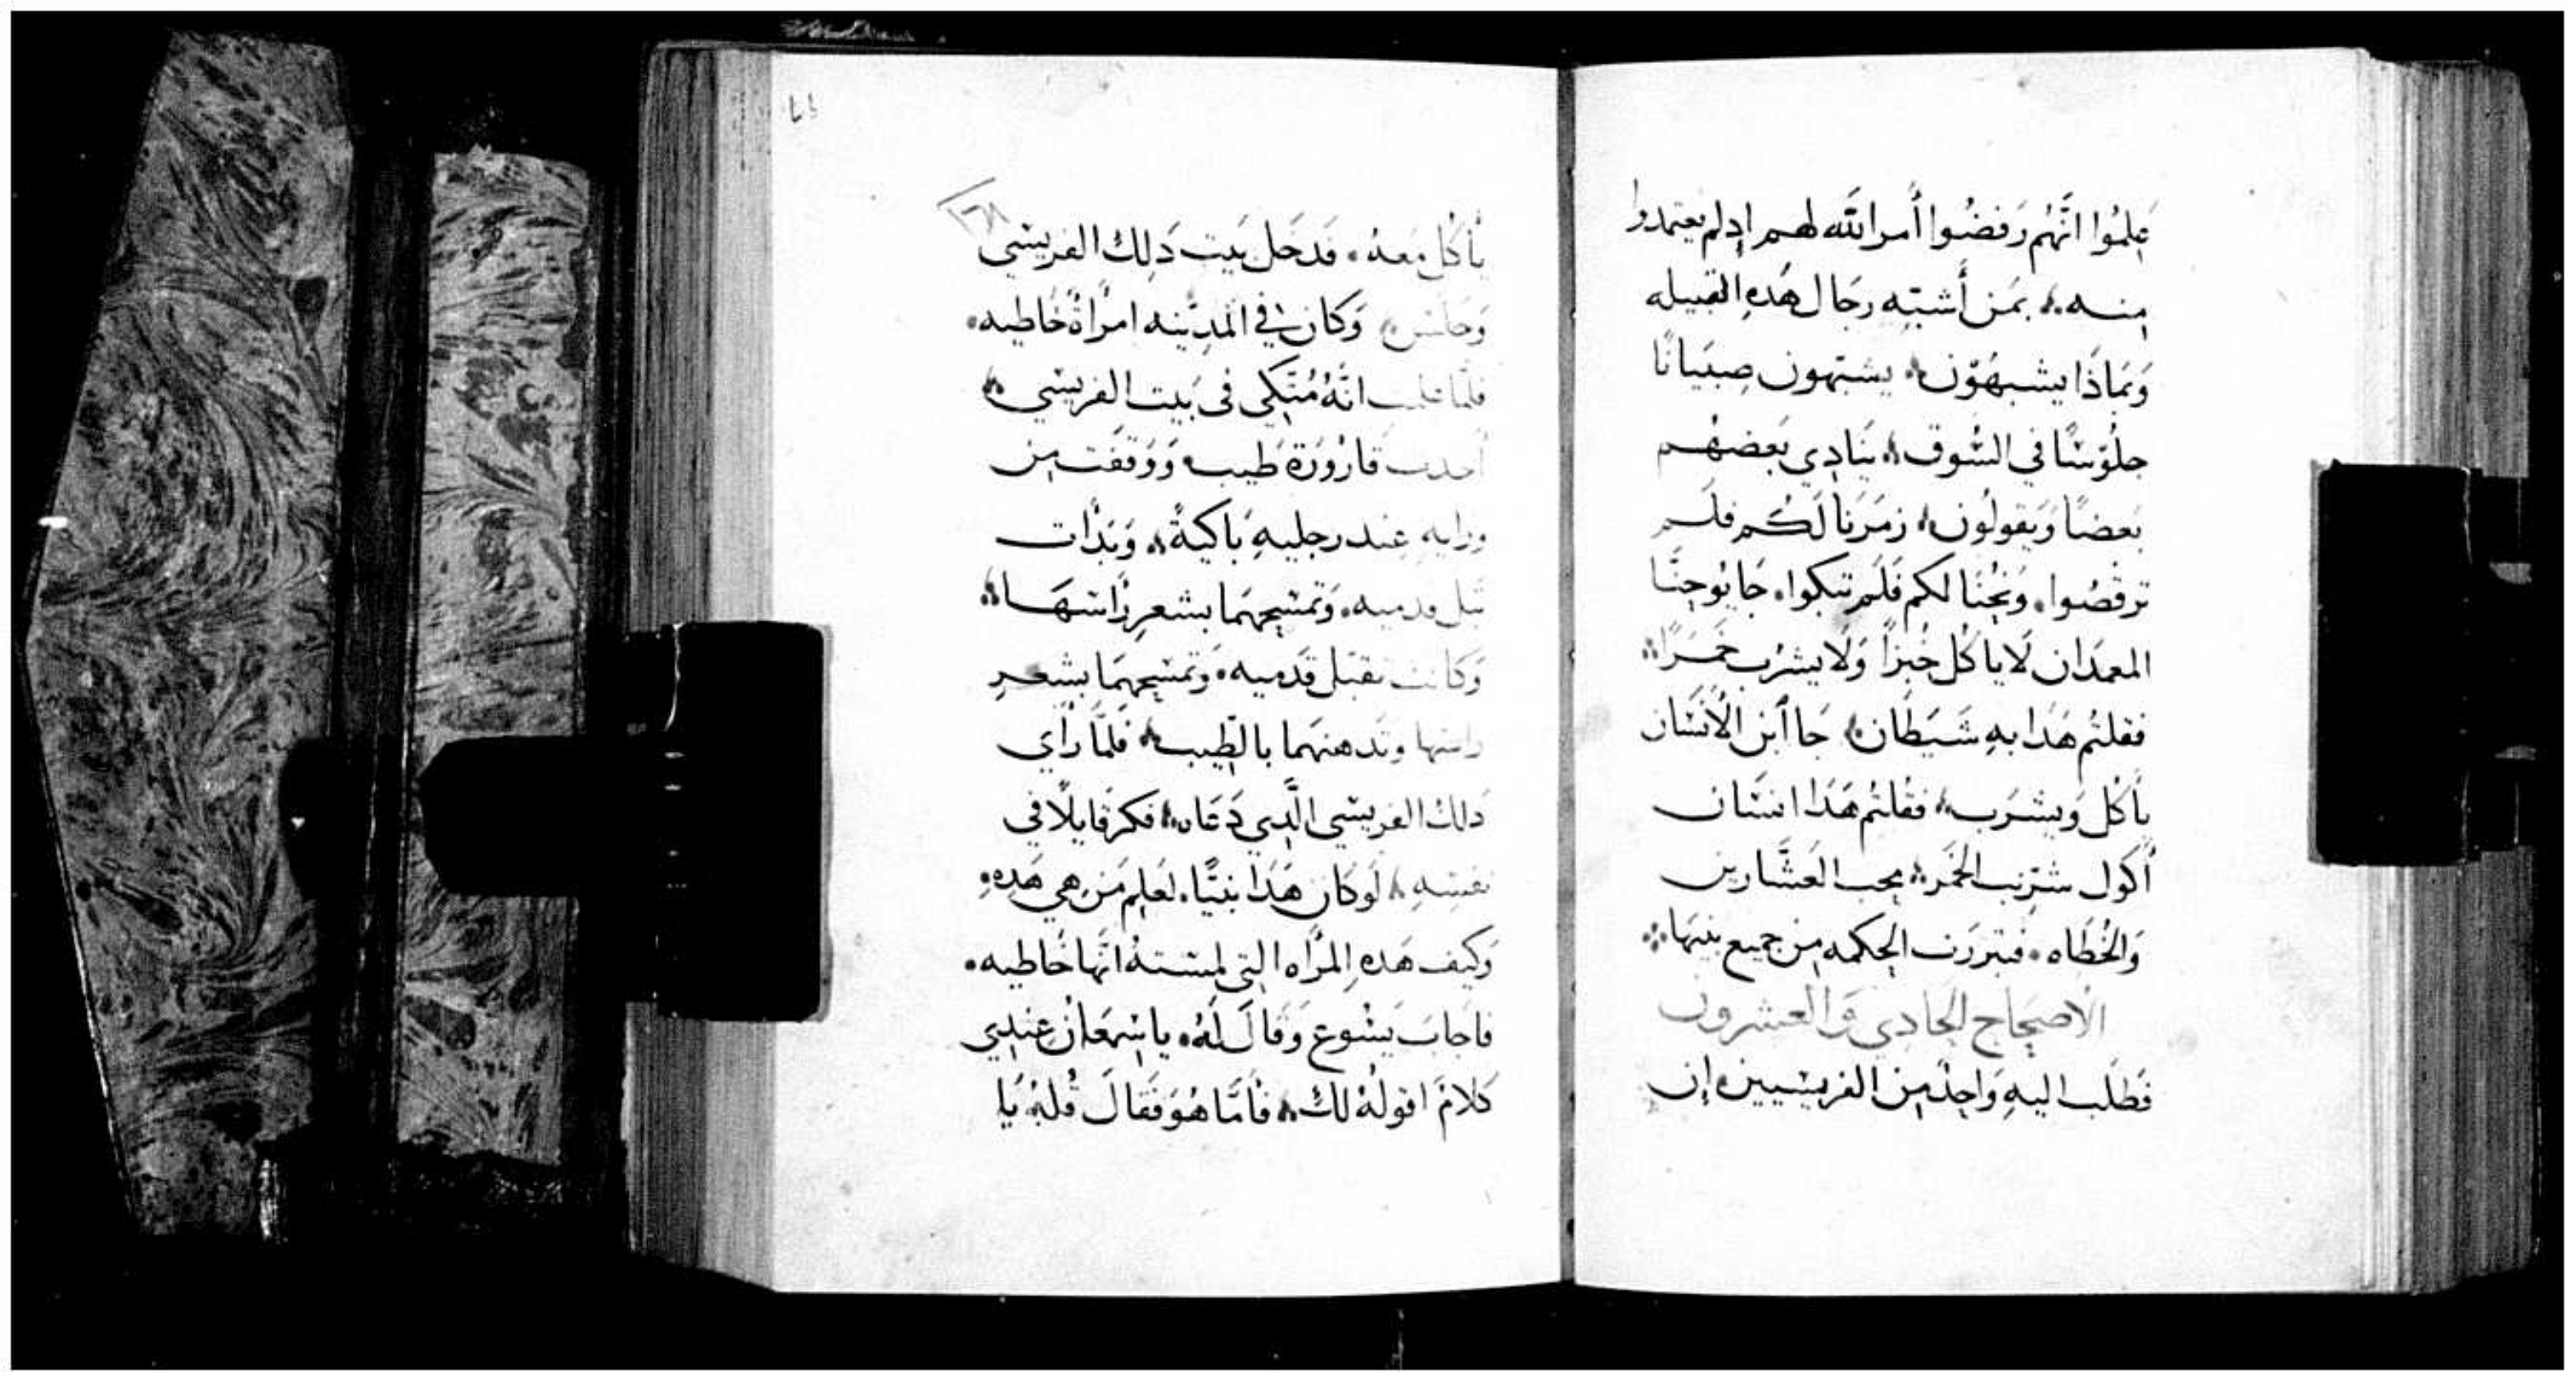 عِلمُوا انَّهُم رَفضُوا أمر الله لهم ادلم يعتمدوا
منه بمَن أُشبّه رجَال هَدهِ القبيله
وَبمَاذَا يشبهَوّن يشبّهون صبيَانًا
جلُوّسًا في السُوق يَنادِي بَعضهُم
بَعضًا وَيَقولُون زمَرنا لَكُم فلَم
ترقصُوا وَنحُنَا لكم فَلَم تبكوا جَا يُوحَنَّا
المعمدَان لَا ياكُل خُبزًا وَلَا يشرُب خَمرًا
فقلتُم هَدَا بهِ شَيَطَان جَا اَبن الاُنسَان
يأكُل وَيشرَب فقُلتُم هَدَا انسَان
أكول شرّيب الخَمر يحب العَشَّارين
وَالخُطَاه فتبررَت الحِكمه مِن جميع بنيهَا
الاصحَاح الحَادي وَالعشرون
فَطَلَب اليهِ وَاحِدٌ مِن الفريسيين ان
يأكُل مَعهُ فَدخَل بَيت دَلِك الفريسي
وَجلس وَكان في المَدِينه امرَأةٌ خَاطيه
فلمَّا علمت انَّهُ مُتّكي في بَيت الفريسي
أخدت قارُورَة طيب وَوَقفَت مِن
ورايه عِند رجليهِ بَاكيةً وَبَدأت
تبل قدميه وَتمسَحهمَا بشعر رَاسهَا
وَكانت تقبّل قَدميه وَتمسَحهمَا بشعر
راسها وتَدهنهمَا بالطّيب فَلمَّا رَأي
دَلك الفريسي الَّدِي دَعَاه فكر قايلًا في
نفسِهِ لَوكَان هَدَا نبيًّا لَعَلِم مَن هِي هَدِهِ
وَكيف هَدهِ المرَأه التي لمسَتهُ انَّها خَاطيه
فاجَابَ يَسُوع وَقَالَ لَهُ يا سِمعَانُ عِندِي
كَلامٌ اقولهُ لكَ فأمَّا هُوَ فَقَالَ قُلهُ يَا